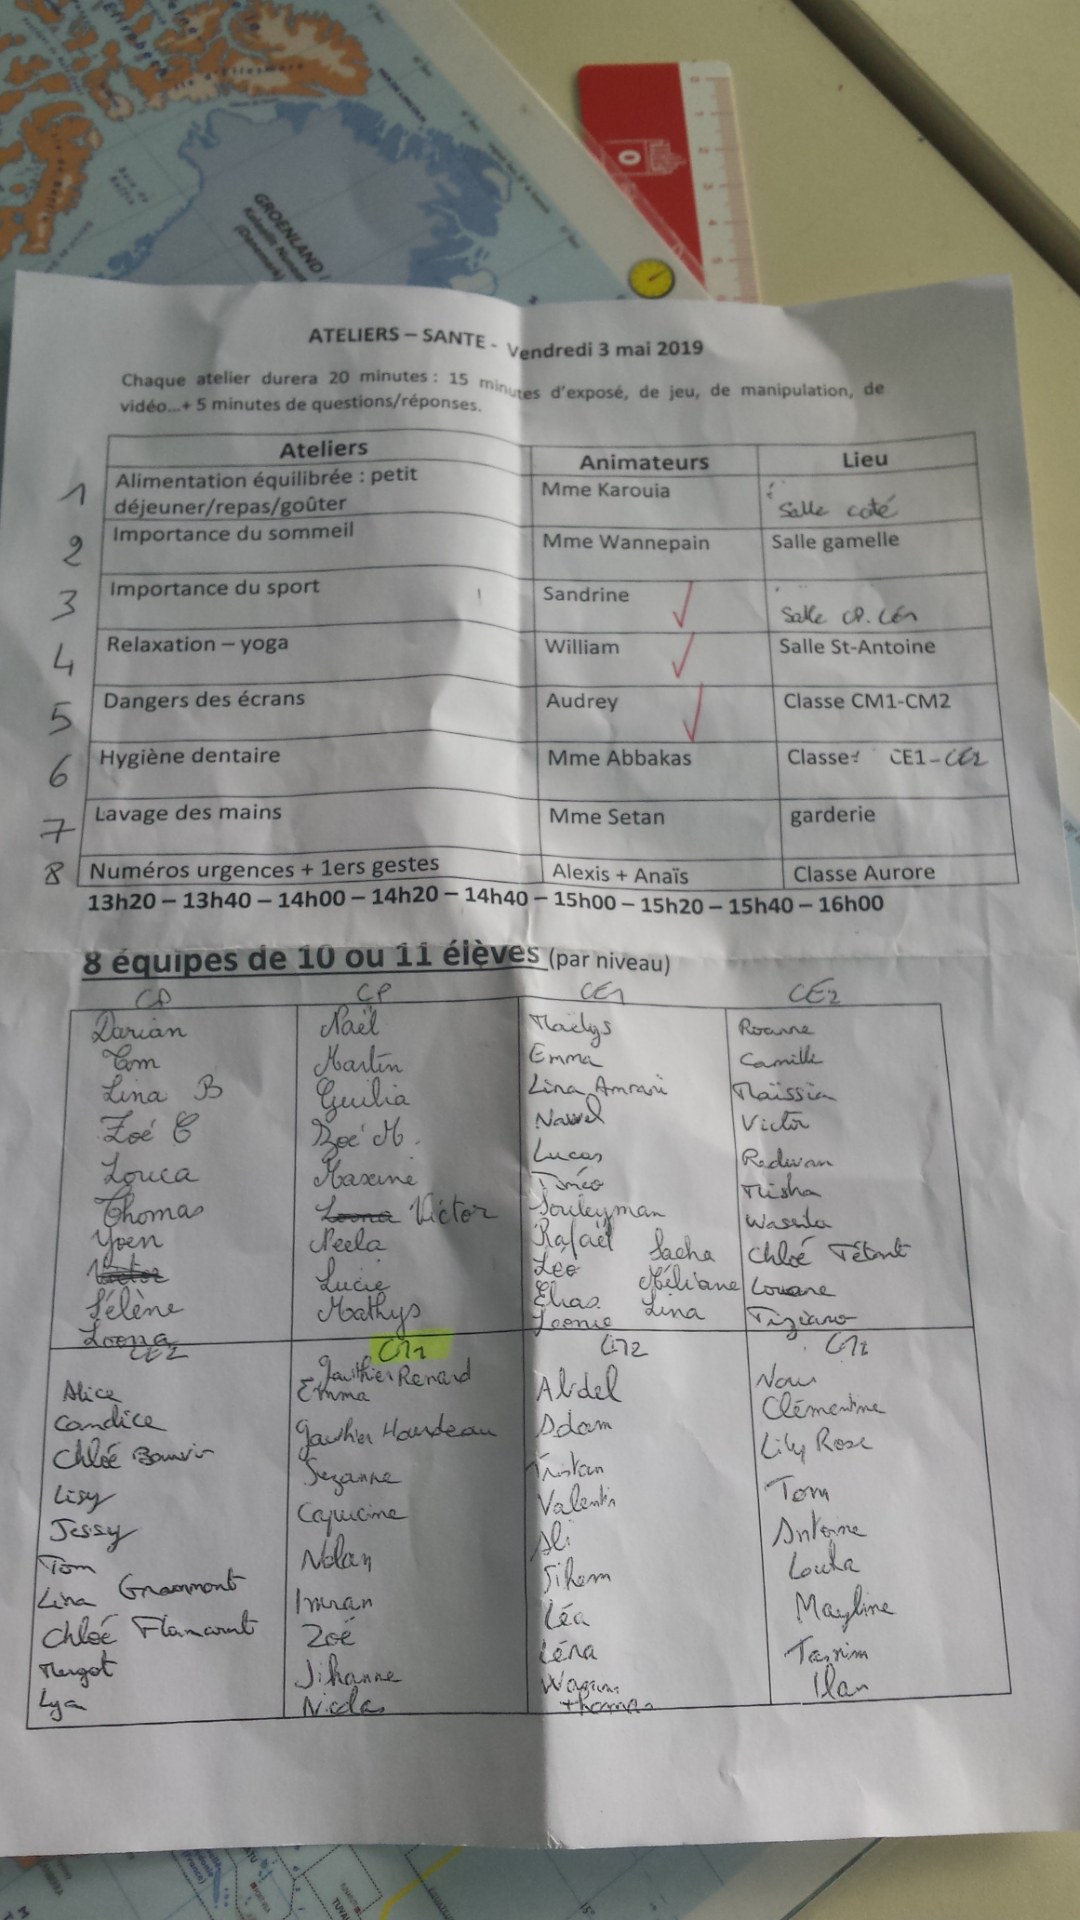 GROENLAND
Kalaallit Nunaat
(Danemark)
ATELIERS – SANTE - Vendredi 3 mai 2019
Chaque atelier durera 20 minutes : 15 minutes d'exposé, de jeu, de manipulation, de
vidéo...+ 5 minutes de questions/réponses.
Ateliers Animateurs Lieu
1 Alimentation équilibrée : petit déjeuner/repas/goûter Mme Karouia Salle coté
2 Importance du sommeil Mme Wannepain Salle gamelle
3 Importance du sport Sandrine Salle CP. CE1
4 Relaxation – yoga William Salle St-Antoine
5 Dangers des écrans Audrey Classe CM1-CM2
6 Hygiène dentaire Mme Abbakas Classe CE1-CE2
7 Lavage des mains Mme Setan garderie
8 Numéros urgences + 1ers gestes Alexis + Anaïs Classe Aurore
13h20 – 13h40 – 14h00 – 14h20 – 14h40 – 15h00 – 15h20 – 15h40 – 16h00
8 équipes de 10 ou 11 élèves (par niveau)
CP
Darian
Tom
Lina B
Zoé C
Louca
Thomas
Yoen
Victor
Sélène
Loona
CP
Naël
Martin
Guilia
Zoé M.
Maxime
Loona Victor
Neela
Lucie
Mathys
CE1
Maëlys
Emma
Lina Amrani
Nawel
Lucas
Timéo
Souleyman
Rafaël Sacha
Léo Méliane
Elias Lina
Leonie
CE2
Roanne
Camille
Maïssia
Victor
Redwan
Misha
Chloé Tétart
Louane
Tiziano
CE2
Alice
Candice
Chloé
Lisy
Jessy
Tom
Lina Grammont
Chloé Flamant
Margot
Lya
CM1
Gauthier Renard
Emma
Gauthier Hourdeau
Suzanne
Capucine
Nolan
Imran
Zoé
Jihanne
Nicolas
CM2
Abdel
Adam
Tristan
Valentin
Ali
Sihem
Léa
Léna
Thomas
Clémentine
Lily Rose
Tom
Antoine
Louka
Mayline
Tasnim
Ilan